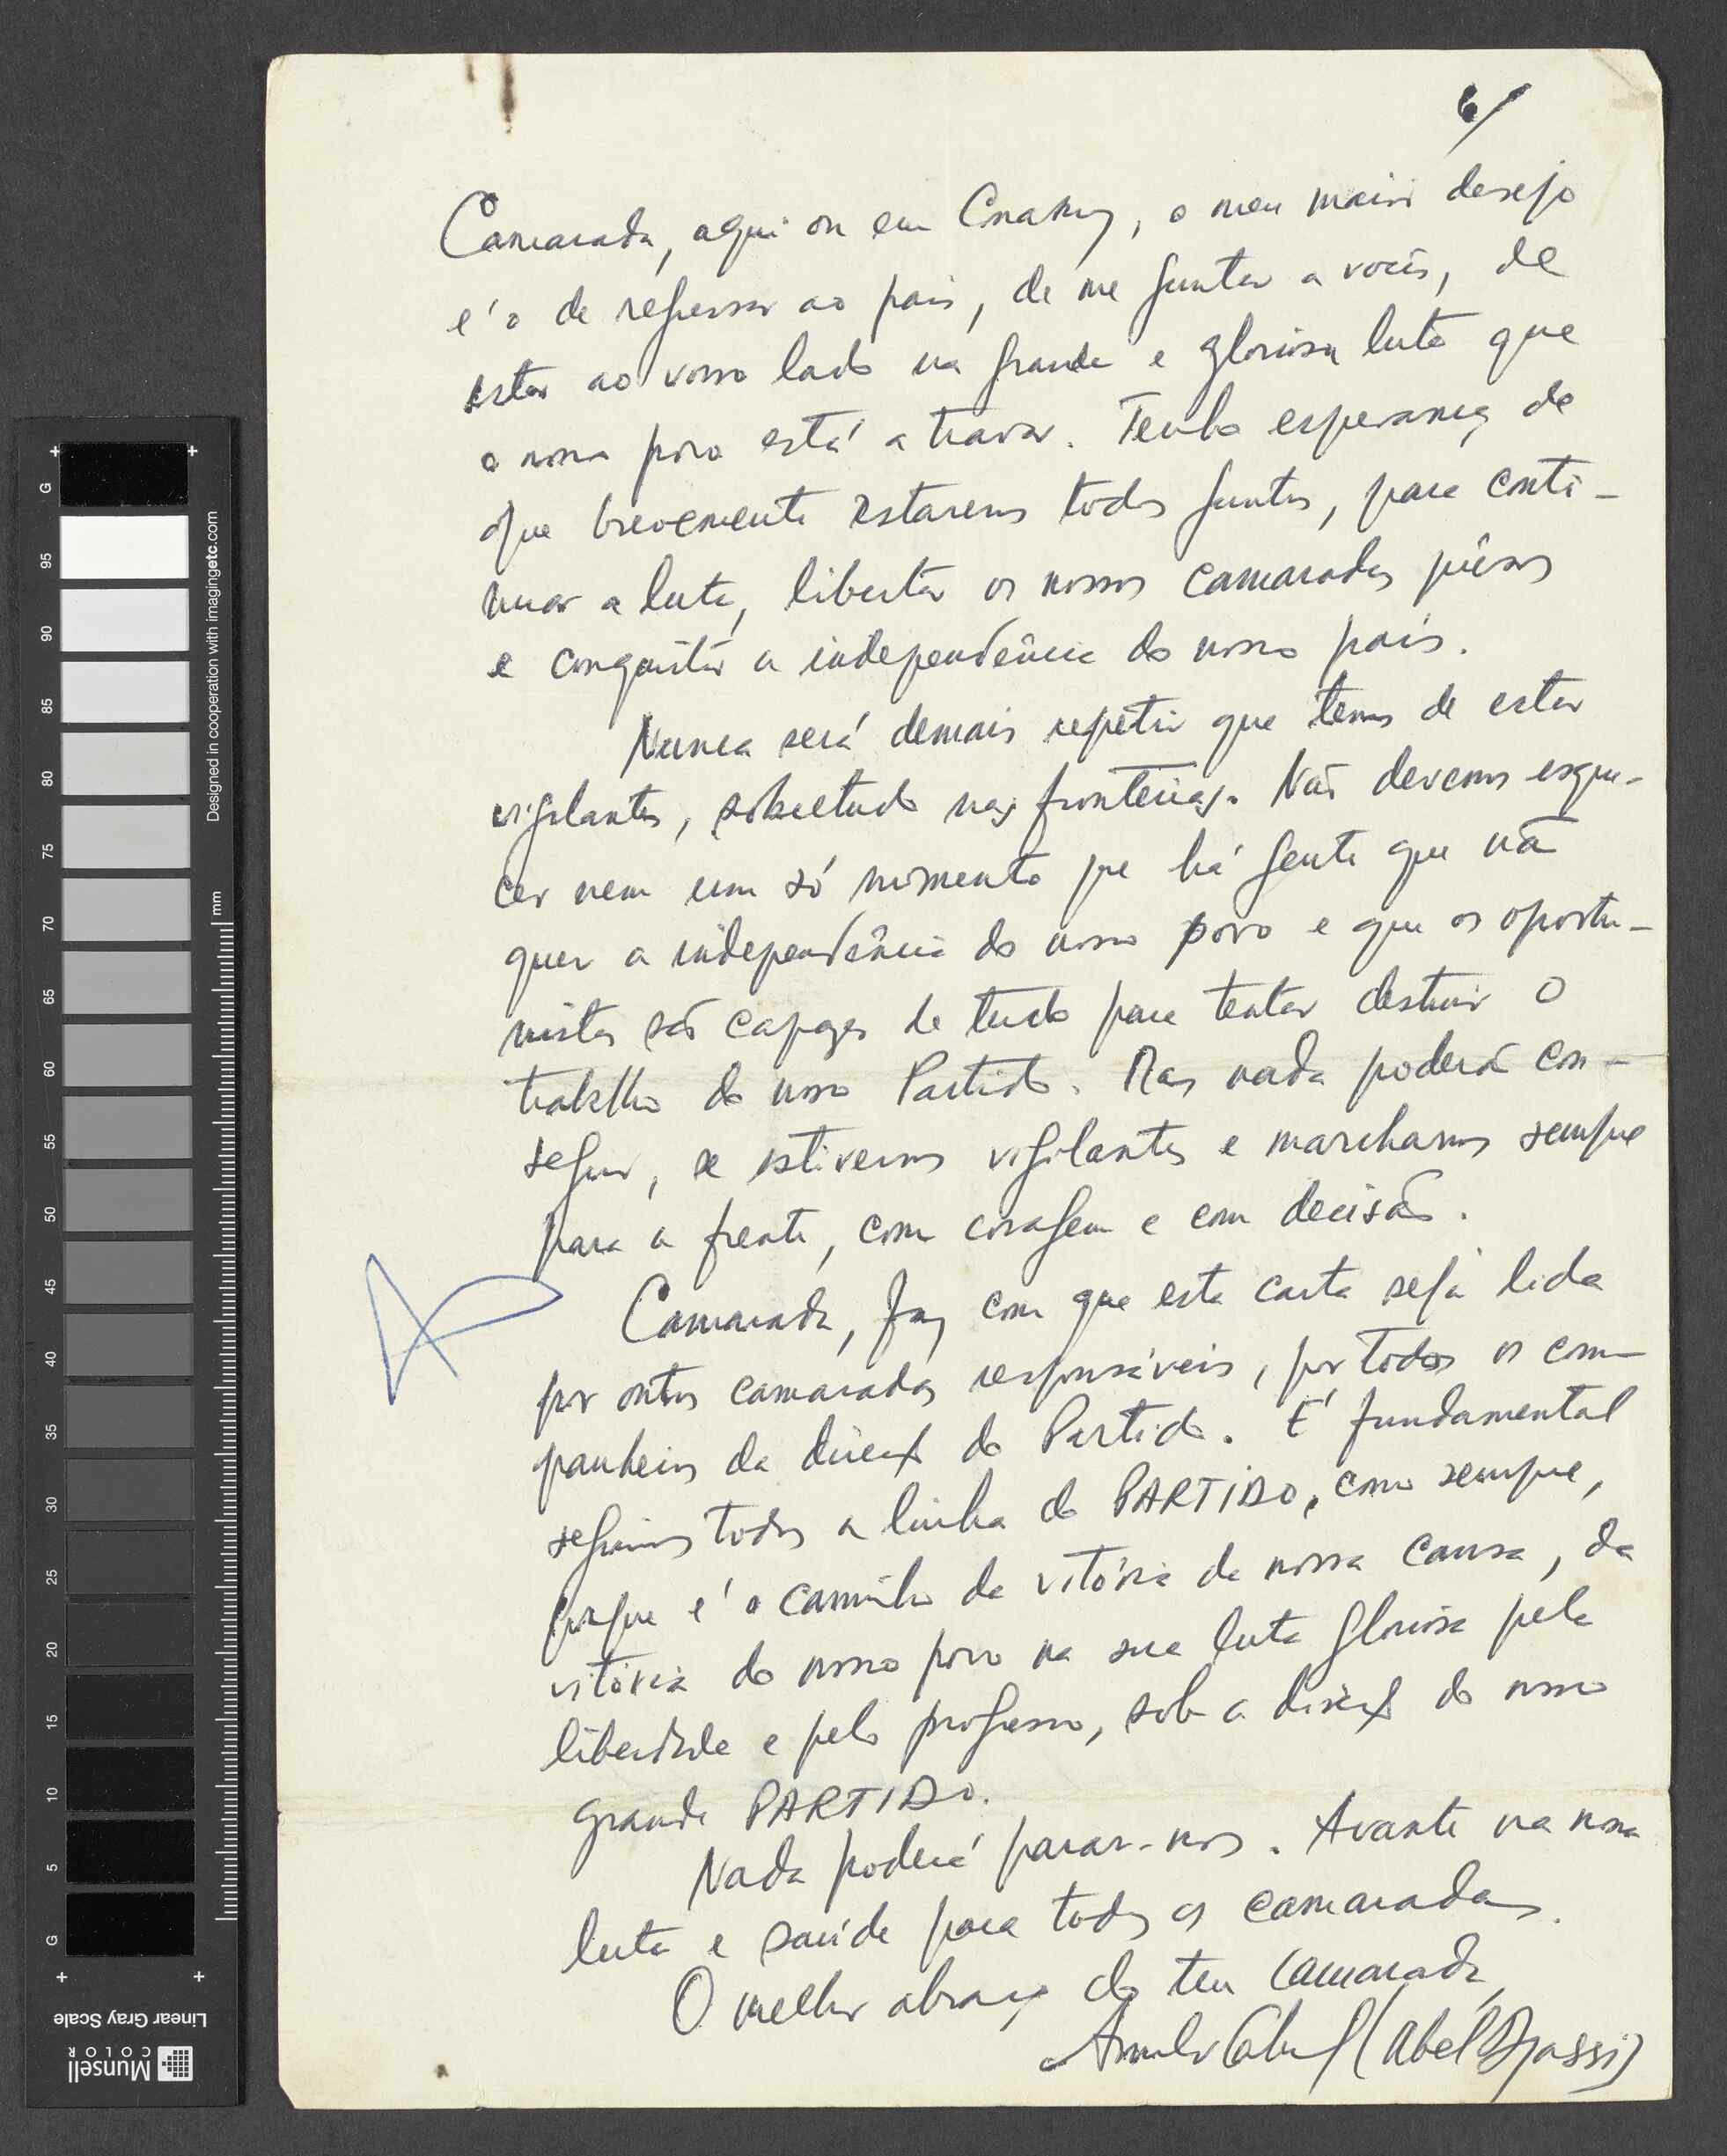 6/
Camarada, aqui ou em Conakry, o meu maior desejo
é o de regressar ao país, de me juntar a vocês, de
estar ao vosso lado na grande e gloriosa luta que
o nosso povo está a travar. Tenho esperança de
que brevemente estaremos todos juntos, para conti-
nuar a luta, libertar os nossos camaradas presos
e conquistar a independência do nosso país.
Nunca será demais repetir que temos de estar
vigilantes, sobretudo nas fronteiras. Não devemos esque-
cer nem um só momento que há gente que não
quer a independência do nosso povo e que os oportu-
nistas são capazes de tudo para tentar destruir o
trabalho do nosso Partido. Mas nada poderão con-
seguir, se estivermos vigilantes e marcharmos sempre
para a frente, com coragem e com decisão.
Camarada, faz com que esta carta seja lida
por outros camaradas responsáveis, por todos os com-
panheiros da direcç do Partido. É fundamental
seguirmos todos a linha do PARTIDO, como sempre,
porque é o caminho da vitória da nossa causa, da
vitória do nosso povo na sua luta gloriosa pela
liberdade e pelo progresso, sob a direcç do nosso
grande PARTIDO.
Nada poderá parar-nos. Avante na nossa
luta e saúde para todos os camaradas.
O melhor abraço do teu camarada,
Amilcar Cabral (Abel Djassi)
Designed in cooperation with imagingetc.com
mm
G
95
90
85
80
75
70
65
60
55
50
45
40
35
30
25
20
15
10
5
G
Linear Gray Scale
Munsell
COLOR